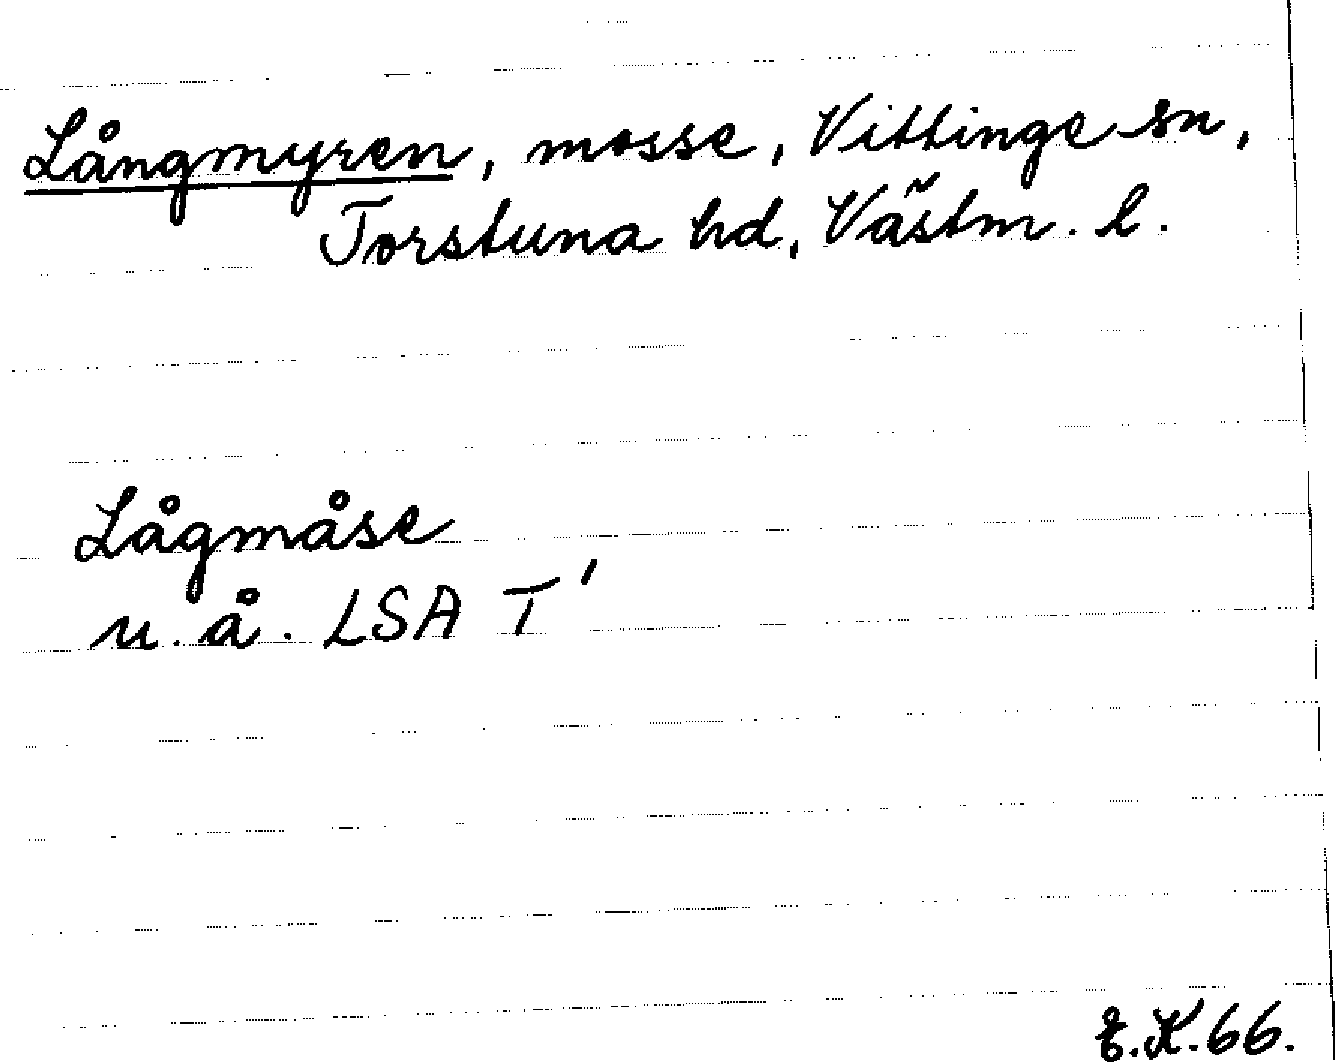 Långmyren, mosse, Vittinge sn,
Torstuna hd, Västm. l.
Lågmåse
u. å. LSA T'
E.K.66.